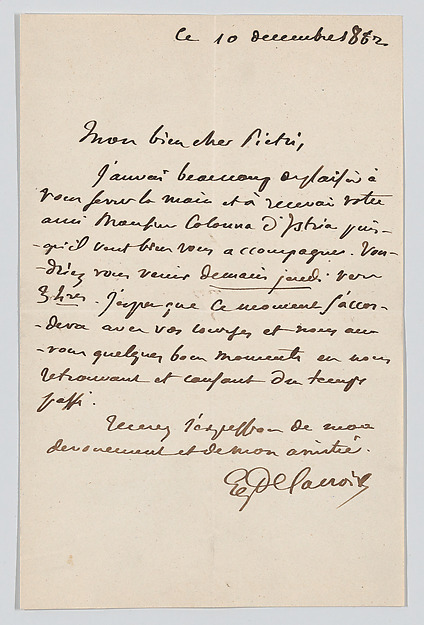 Ce 10 decembre 1862
Mon bien cher Pietri,
J'aurai beaucoup de plaisir à
vous serrer la main et à recevoir votre
ami Monsieur Colonna d'Istria puis-
-qu'il veut bien vous accompagner. Vou-
-driez vous venir demain jeudi vers
3 hres. J'espère que ce moment s'accor-
-dera avec vos courses et nous au-
-rons quelques bons moments en nous
retrouvant et causant du temps
passé.
Recevez l'expression de mon
dévouement et de mon amitié.
Eug Delacroix